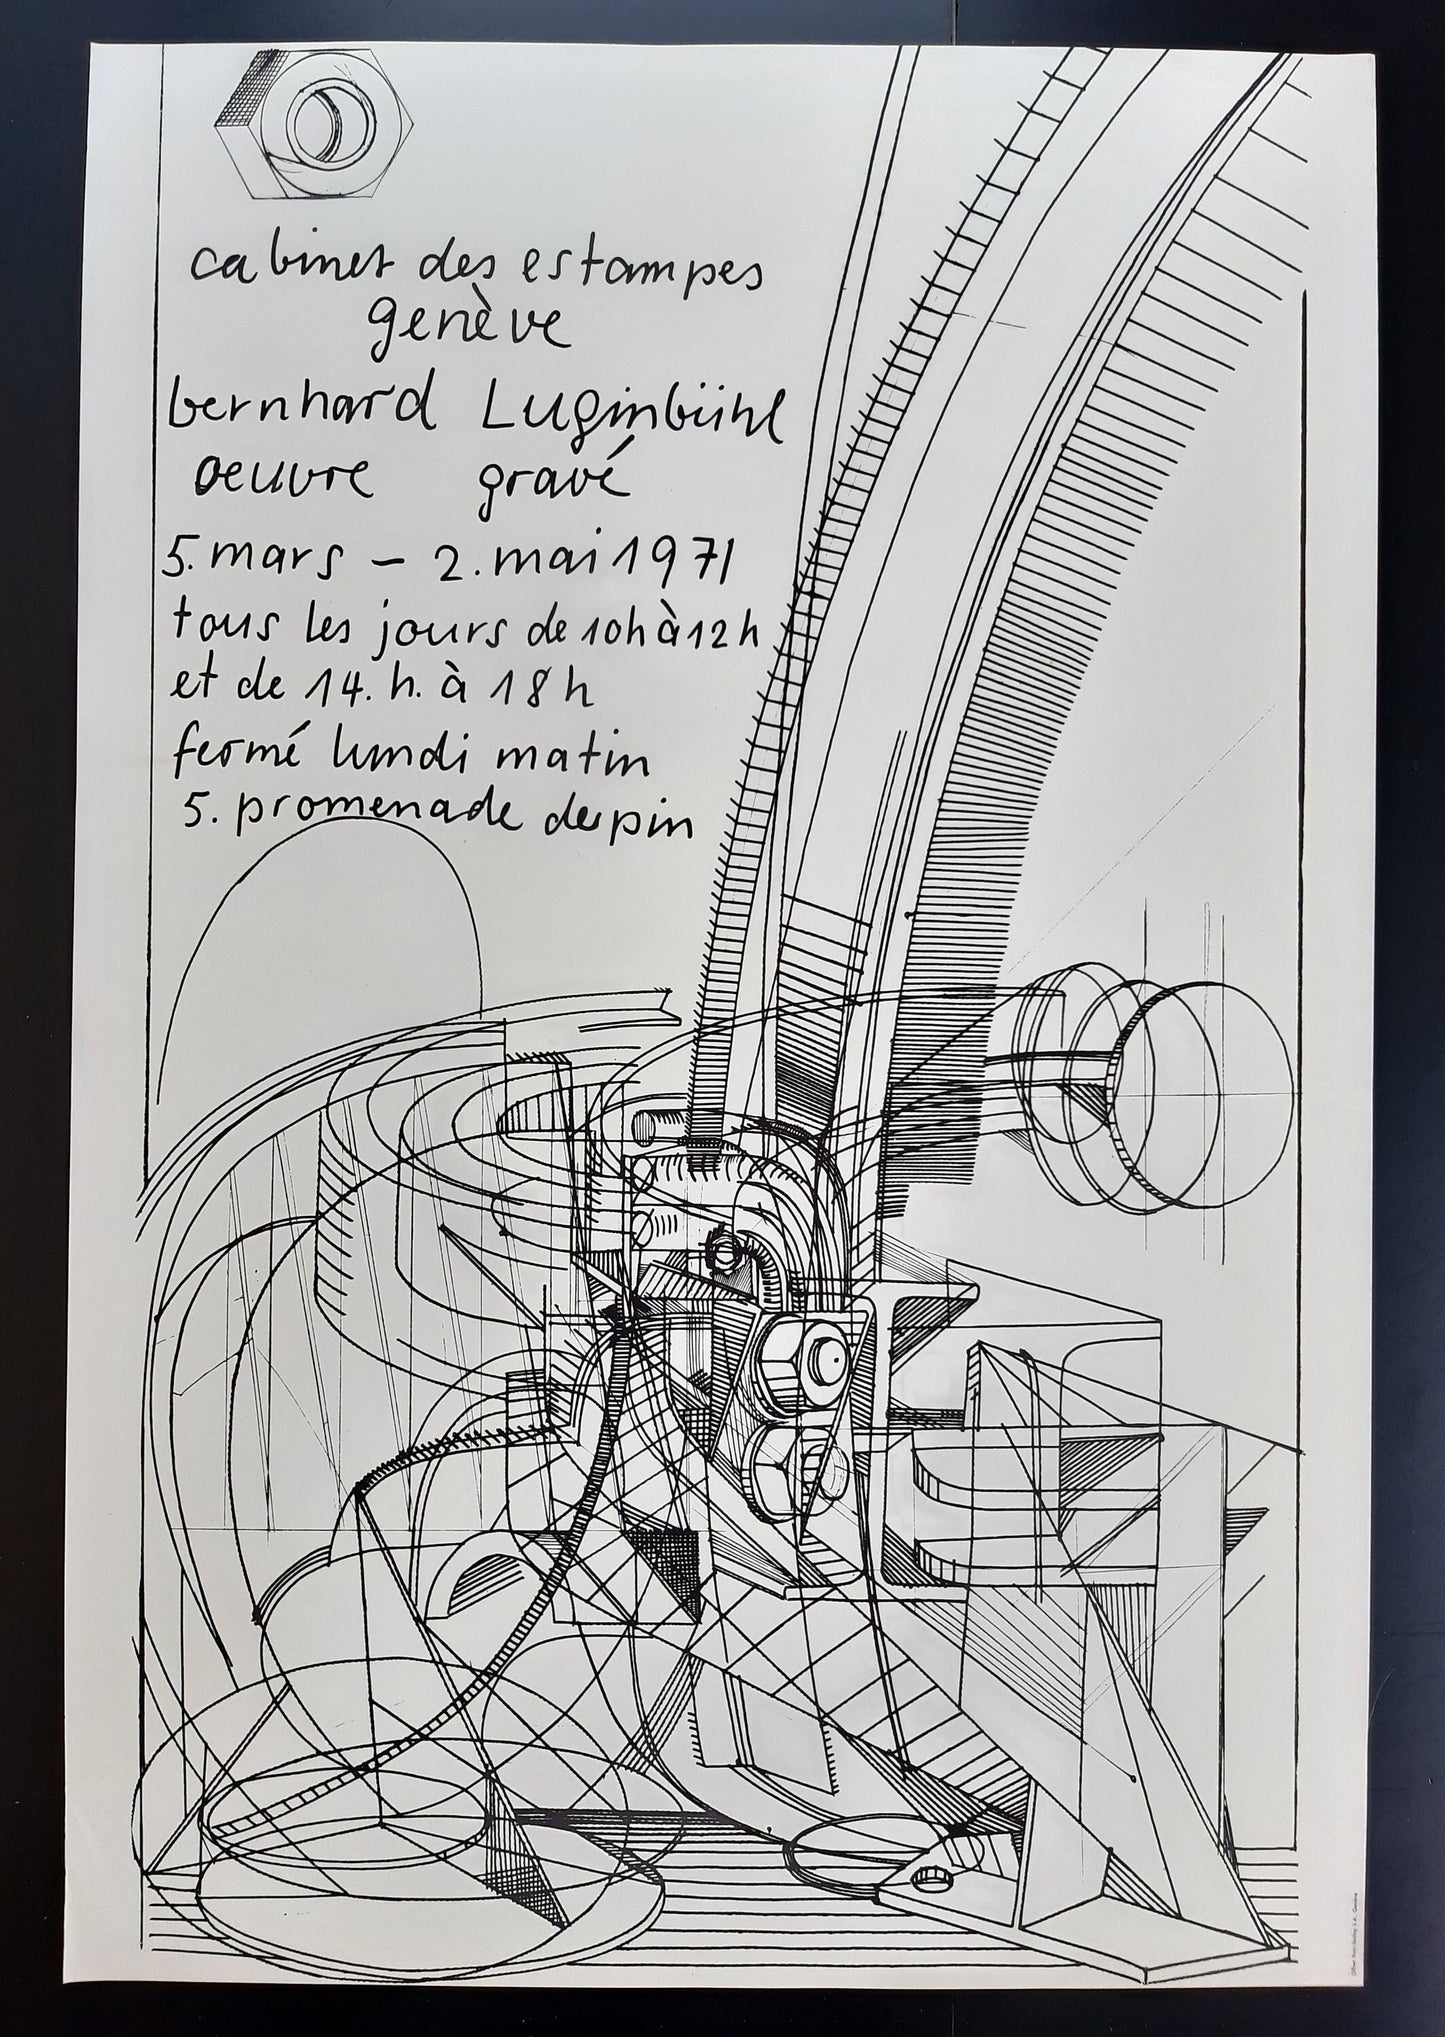 cabinet des estampes
genève
bernhard Luginbühl
oeuvre gravé
5. mars – 2. mai 1971
tous les jours de 10h à 12h
et de 14. h. à 18h
fermé lundi matin
5. promenade du pin